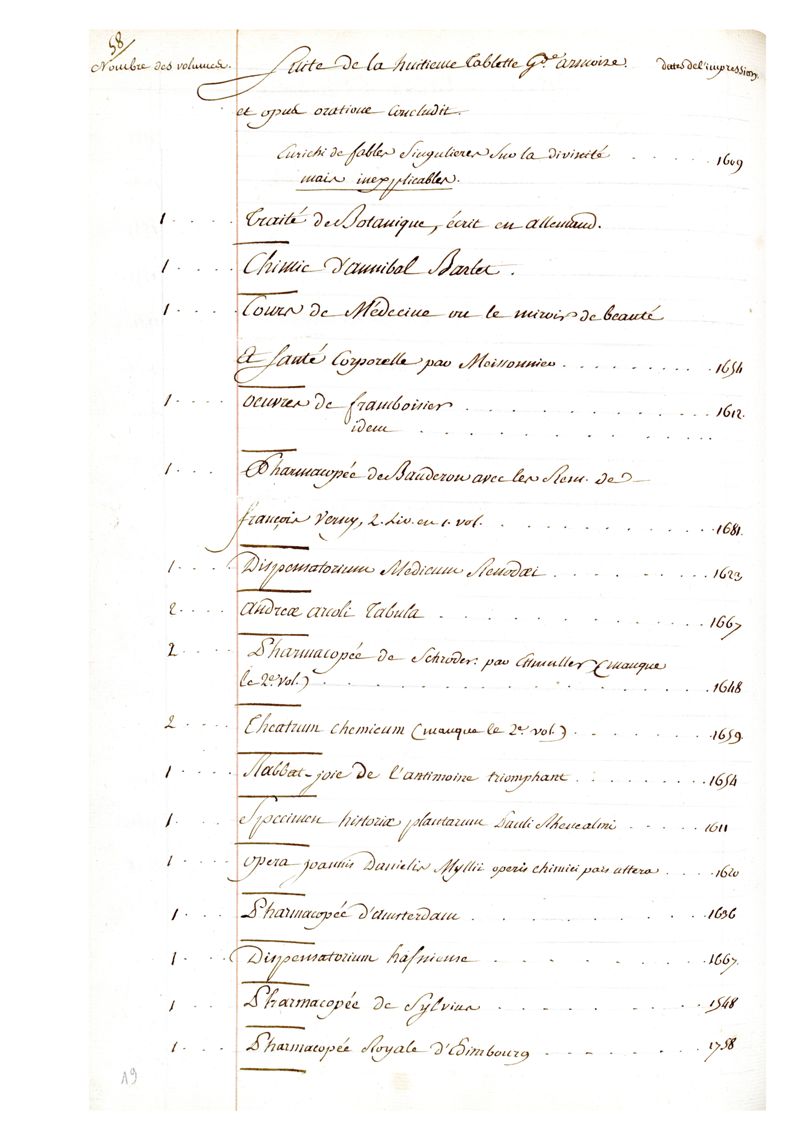 58
Nombre des volumes. Suite de la huitieme Tablette Gde. armoire. dates de l'impression.
et opus oratione Concludit.
Enrichi de fables Singulieres Sur la divinité . . . . . 1609
mais inexplicables.
1 . . . . Traité de Botanique, écrit en allemand.
1 . . . . Chimie d'annibal Barlet.
1 . . . . Cours de Médecine ou le miroir de beauté
Et Santé Corporelle par Meissonnier . . . . . . . . . 1654
1 . . . . oeuvres de framboisier . . . . . . . . . . . . . 1612.
idem . . . . . . . . . .
1 . . . . Pharmacopée de Bauderon avec les Rem. de
françois Verny, 2. Liv. en 1. vol. . . . . . . . . . . 1681.
1 . . . . Dispensatorium Medicum Renodæi . . . . . . . . 1623
2 . . . . andreæ arcoli Tabula . . . . . . . . . . . . . 1667
2 . . . . Pharmacopée de Schroder. par Etmuller (manque
le 2e. vol.) . . . . . . . . . . . . . . . . 1648
2 . . . . Theatrum chemicum (manque le 2e. vol.) . . . . . . . 1659.
1 . . . . Rabbat-joie de l'antimoine triomphant . . . . . . . 1654
1 . . . . Specimen historiæ plantarum Pauli Rhenealmi . . . . . 1611
1 . . . . opera joannis Danielis Myllii operis chimici pars altera . . . . 1620
1 . . . . Pharmacopée d'amsterdam . . . . . . . . . . 1636
1 . . . . Dispensatorium hafniense . . . . . . . . . . 1667.
1 . . . . Pharmacopée de Sylvius . . . . . . . . . . 1548
1 . . . . Pharmacopée Royale d'Edimbourg . . . . . . . 1758
A9